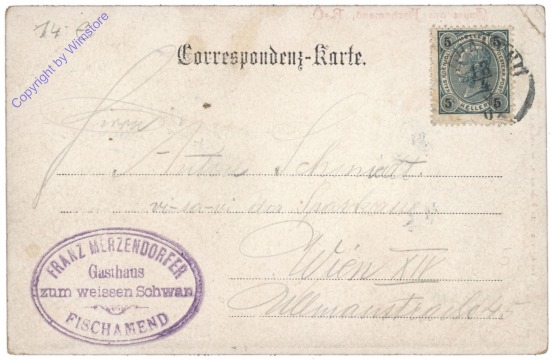 14
Copyright by Wimstore
Correspondenz-Karte.
5 5
HELLER
5 5
Herrn
Anton Schmidt
vis-a-vi der Sparkasse
Wien XIV
Ullmannstraße 45
FRANZ MERZENDORFER
Gasthaus
zum weissen Schwan
FISCHAMEND